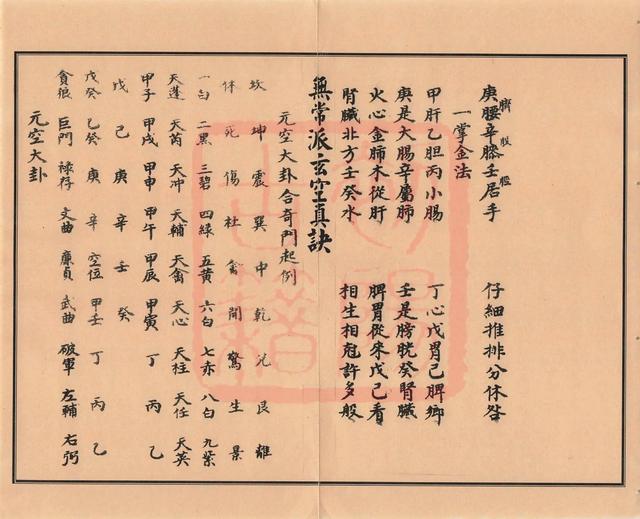 臍 股 脛
庚腰辛膝壬居手 仔細推排分休咎
一掌金法
甲肝乙胆丙小腸 丁心戊胃己脾鄉
庚是大腸辛屬肺 壬是膀胱癸腎臟
火心金肺木從肝 脾胃從來戊己看
腎臟北方壬癸水 相生相克許多般
無常派玄空真訣
元空大卦合奇門起例
坎 坤 震 巽 中 乾 兌 艮 離
休 死 傷 杜 禽 開 驚 生 景
一白 二黑 三碧 四綠 五黃 六白 七赤 八白 九紫
天蓬 天芮 天冲 天輔 天禽 天心 天柱 天任 天英
甲子 甲戌 甲申 甲午 甲辰 甲寅 丁 丙 乙
戊 己 庚 辛 壬 癸
戊癸 乙癸 庚 辛 空位 甲壬 丁 丙 乙
貪狼 巨門 祿存 文曲 廉貞 武曲 破軍 左輔 右弼
元空大卦